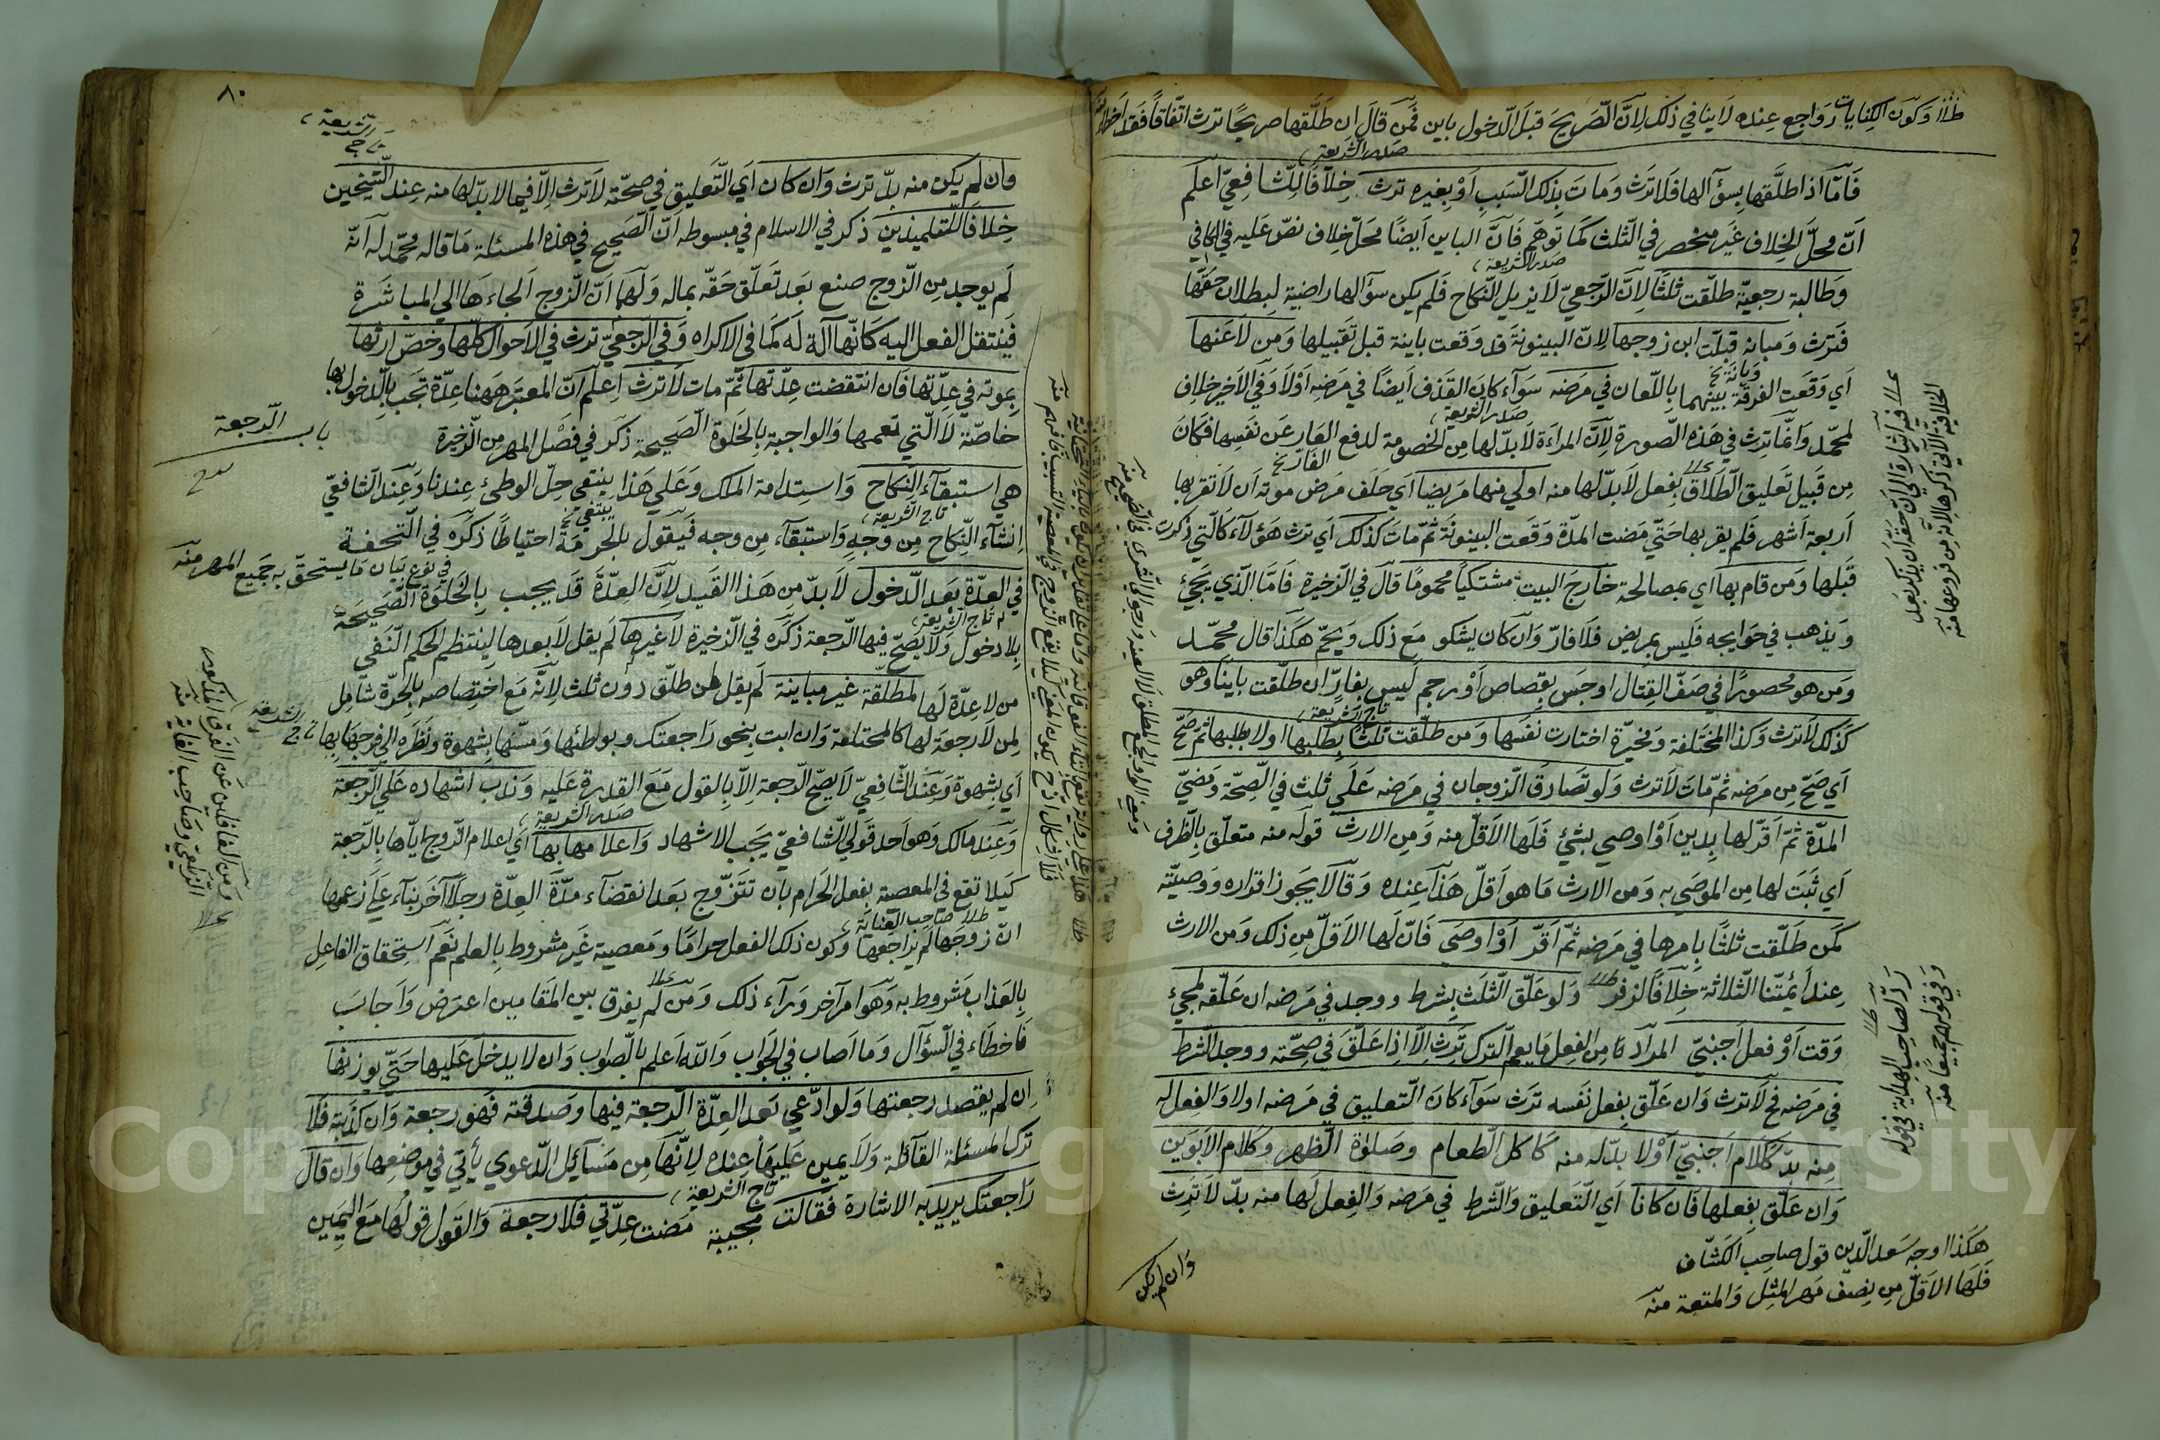 وكون الكنايات رواجع عنده لا ينافي ذلك لأن الصريح قبل الدخول باين فمن قال ان طلقها صريحًا ترث اتفاقًا فقد اخطأ
صدر الشريعة
فاما اذا طلقها بسؤالها فلا ترث ومات بذلك السبب أو بغيره ترث خلافًا للشافعي اعلم
ان محل الخلاف غير منحصر في الثلث كما توهم فان الباين أيضًا محل خلاف نص عليه في الكافي
صدر الشريعة
وطالبة رجعية طلقت ثلثًا لان الرجعي لا يزيل النكاح فلم يكن سؤالها راضية لبطلان حقها
فترث ومبانة قبلت ابن زوجها لان البينونة قد وقعت باينة قبل تقبيلها ومن لاعنها
أي وقعت الفرقة بينهما باللعان في مرضه سوآء كان القذف أيضًا في مرضه أو لا وفي الاخير خلاف
صدر الشريعة
لمحمد وانما ترث في هذه الصورة لان المراة لا بد لها من الخصومة لدفع العار عن نفسها فكان
من قبيل تعليق الطلاق بفعل لا بد لها منه اولي منها مريضا أي حلف مرض موته ان لا تقربها
أربعة أشهر فلم يقربها حتي مضت المدة وقعت البينونة ثم مات كذلك أي ترث هؤلآء كالتي ذكرت
قبلها ومن قام بها اي بمصالحة خارج البيت مشتكيًا محمومًا قال في الذخيرة فاما الذي يجيء
ويذهب في حوايجه فليس بمريض فلا فار وان كان يشكو مع ذلك ويحم هكذا قال محمد
ومن هو محصورًا في صف القتال او حبس بقصاص أو رجم ليس بفار ان طلقت باينًا وهو
تاج الشريعة
كذلك لا ترث وكذا المختلعة ومخيرة اختارت نفسها ومن طلقت ثلثًا بطلبها اولا بطلبها ثم صح
أي صح من مرضه ثم مات لا ترث ولو تصادق الزوجان في مرضه على ثلث في الصحة ومضي
المدة ثم اقر لها بدين أو اوصي بشئ فلها الاقل منه ومن الارث قوله منه متعلق بالظرف
أي ثبت لها من الموصي به ومن الارث ما هو اقل هذا عنده وقالا يجوز اقراره ووصيته
كمن طلقت ثلثًا بامرها في مرضه ثم اقر أو اوصي فان لها الاقل من ذلك ومن الارث
عند أئمتنا الثلاثة خلافًا لزفر ولو علق الثلث بشرط ووجد في مرضه ان علقه لمجئ
وقت أو فعل اجنبي المراد من الفعل ما يعم الترك ترث الا اذا علق في صحته ووجد الشرط
في مرضه فح لا ترث وان علق بفعل نفسه ترث سوآء كان التعليق في مرضه اولا والفعل له
منه بد ككلام اجنبي أو لا بد له منه كاكل الطعام وصلوة الظهر وكلام الابوين
وان علق بفعلها فان كانا أي التعليق والشرط في مرضه والفعل لها منه بد لا ترث
هكذا وجه سعد الدين قول صاحب الكشاف
فلها الاقل من نصف مهر المثل والمتعة منه
وان لم يكن
٨٠
تاج الشريعة
وان لم يكن منه بد ترث وان كان أي التعليق في صحته لا ترث الا فيما لا بد لها منه عند الشيخين
خلافًا للتلميذين ذكر في الاسلام في مبسوطه ان الصحيح في هذه المسئلة ما قاله محمد له انه
لم يوجد من الزوج صنع بعد تعلق حقه بماله ولهما ان الزوج الجاءها الي المباشرة
فينتقل الفعل اليه كانها آلة له كما في الاكراه وفي الرجعي ترث في الاحوال كلها وخص ارثها
بموته في عدتها فان انتقضت عدتها ثم مات لا ترث اعلم ان المعتبر ههنا عدة تجب بالدخول بها
خاصة لا التي تعمها والواجبة بالخلوة الصحيحة ذكر في فصل المهر من الذخيرة
باب الرجعة
هي استبقآء النكاح واستدامة الملك وعلي هذا ينتفي حل الوطئ عندنا وعند الشافعي
تاج الشريعة
انشآء النكاح من وجه واستبقآء من وجه فيقول بالحرمة احتياطًا ذكره في التحفة
في نوع بيان ما يستحق به جميع المهر منه
في العدة بعد الدخول لا بد من هذا القيد لان العدة قد يجب بالخلوة الصحيحة
تاج الشريعة
بلا دخول ولا يصح فيها الرجعة ذكره في الذخيرة لا غيرها لم يقل لا بعدها لينتظم الحكم النفي
من لا عدة لها لمطلقة غير مباينة لم يقل لمن طلق دون ثلث لانه مع اختصاصه بالحرة شامل
تاج الشريعة
لمن لا رجعة لها كالمختلعة وان ابت بنحو راجعتك وبوطئها ومسها بشهوة ونظره الي فرجها بها
أي بشهوة وعند الشافعي لا يصح الرجعة الا بالقول مع القدرة عليه وندب اشهاده علي الرجعة
صدر الشريعة
وعند مالك وهو احد قولي الشافعي يجب الاشهاد واعلامها بها أي اعلام الزوج اياها بالرجعة
كيلا تقع في المعصة بفعل الحرام بان تتزوج بعد انقضآء مدة العدة رجلًا آخر بنآء علي زعمها
صاحب العناية
ان زوجها لم يراجعها وكون ذلك الفعل حرامًا ومعصية غير مشروط بالعلم نعم استحقاق الفاعل
بالعذاب مشروط به وهو امر آخر ورآء ذلك ومن لم يفرق بين المقامين اعترض واجاب
فاخطاء في السؤال وما اصاب في الجواب والله اعلم بالصواب وان لا يدخل عليها حتي يوذنها
ان لم يقصد رجعتها ولو ادعي بعد العدة الرجعة فيها وصدقته فهو رجعة وان كذبته فلا
ترك المسئلة القآئلة ولا يمين عليها عنده لانها من مسآئل الدعوي يأتي في موضعها وان قال
تاج الشريعة
راجعتك يريد به الاشارة فقالت مجيبة مضت عدتي فلا رجعة والقول قولها مع اليمين
Copyright © King Saud University